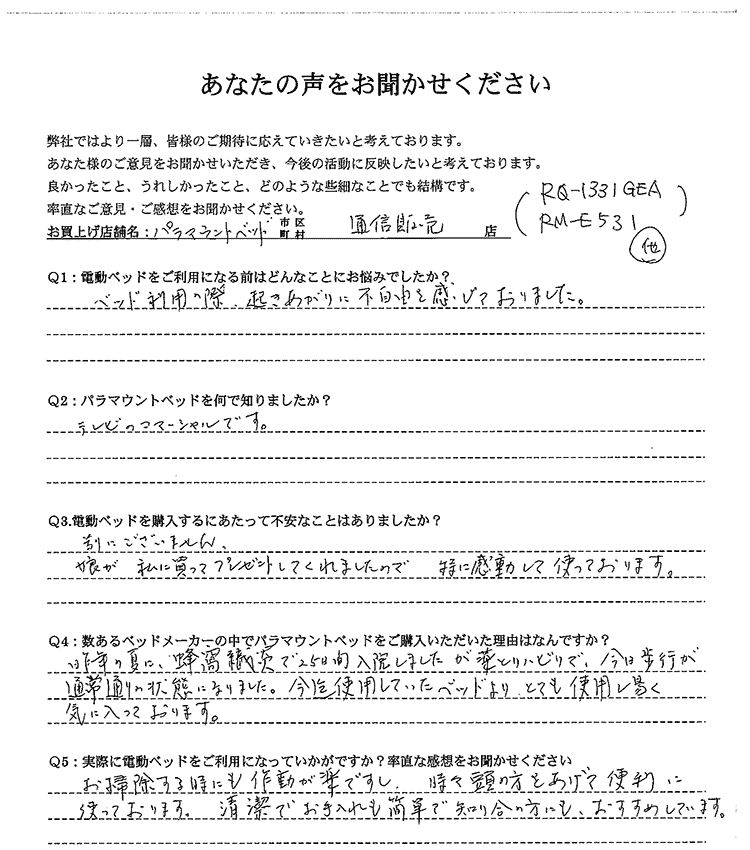 あなたの声をお聞かせください
弊社ではより一層、皆様のご期待に応えていきたいと考えております。
あなた様のご意見をお聞かせいただき、今後の活動に反映したいと考えております。
良かったこと、うれしかったこと、どのような些細なことでも結構です。
率直なご意見・ご感想をお聞かせください。
(RQ-1331GEA
RM-E531)
他
お買上げ店舗名：パラマウントベッド 市区町村 通信販売 店
Q1：電動ベッドをご利用になる前はどんなことにお悩みでしたか？
ベッド利用の際、起きあがりに不自由を感じておりました。
Q2：パラマウントベッドを何で知りましたか？
テレビのコマーシャルです。
Q3.電動ベッドを購入するにあたって不安なことはありましたか？
別にございません、
娘が 私に買ってプレゼントしてくれましたので 特に感動して使っております。
Q4：数あるベッドメーカーの中でパラマウントベッドをご購入いただいた理由はなんですか？
昨年の夏に、蜂窩織炎で25日間入院しましたが 今は歩行が
通常通りの状態になりました。今迄使用していたベッドより とても使用し易く
気に入っております。
Q5：実際に電動ベッドをご利用になっていかがですか？率直な感想をお聞かせください
お掃除する時にも作動が楽ですし、時々頭の方をあげて便利に
使っております。 清潔でお手入れも簡単で知り合の方にも、おすすめしています。